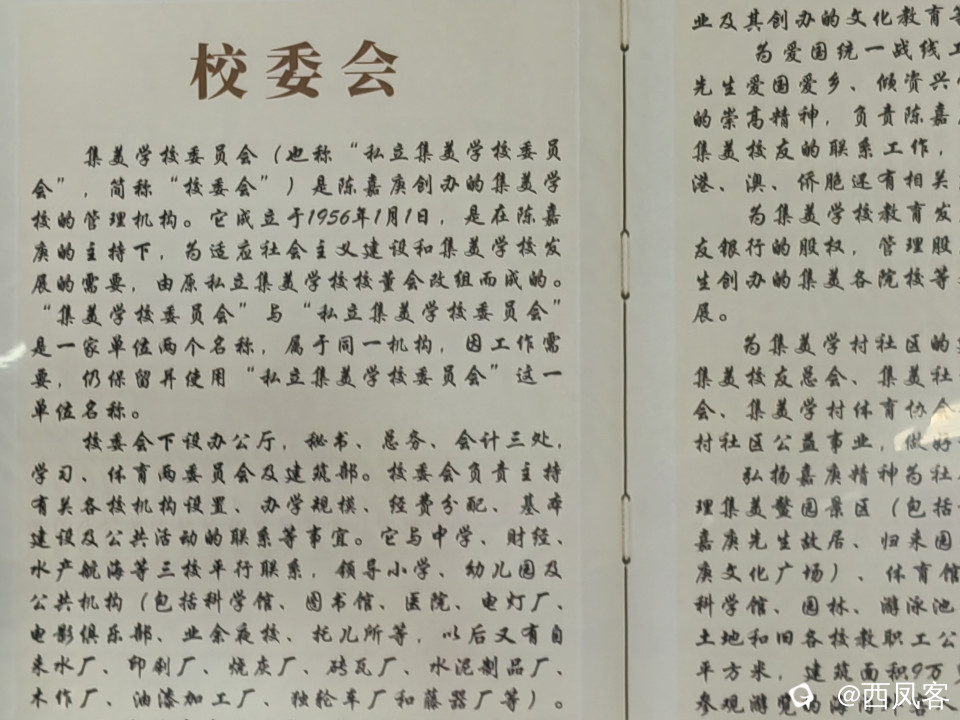 校委会
集美学校委员会（也称“私立集美学校委员
会”，简称“校委会”）是陈嘉庚创办的集美学
校的管理机构。它成立于1956年1月1日，是在陈嘉
庚的主持下，为适应社会主义建设和集美学校发
展的需要，由原私立集美学校校董会改组而成的。
“集美学校委员会”与“私立集美学校委员会”
是一家单位两个名称，属于同一机构，因工作需
要，仍保留并使用“私立集美学校委员会”这一
单位名称。
校委会下设办公厅，秘书、总务、会计三处，
学习、体育两委员会及建筑部。校委会负责主持
有关各校机构设置、办学规模、经费分配、基本
建设及公共活动的联系等事宜。它与中学、财经、
水产航海等三校平行联系，领导小学、幼儿园及
公共机构（包括科学馆、图书馆、医院、电灯厂、
电影俱乐部、业余夜校、托儿所等，以后又有自
来水厂、印刷厂、烧灰厂、砖瓦厂、水泥制品厂、
木作厂、油漆加工厂、独轮车厂和藤器厂等）。
业及其创办的文化教育
为爱国统一战线
先生爱国爱乡、倾资兴
的崇高精神，负责陈嘉
集美校友的联系工作，
港、澳、侨胞还有相关
为集美学校教育发
友银行的股权，管理股
生创办的集美各院校等
展。
为集美学村社区的
集美校友总会、集美社
会、集美学村体育协会
村社区公益事业，做好
弘扬嘉庚精神为社
理集美鳌园景区（包括
嘉庚先生故居、归来园
庚文化广场）、体育馆
科学馆、园林、游泳池
土地和旧各校教职工公
平方米，建筑面积9万
参观游览的海内外
@西凤客